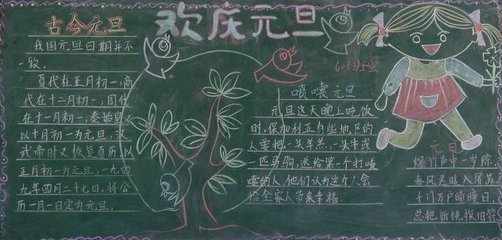 欢庆元旦
古今元旦
我国元旦日期并不
一致,
夏代在正月初一,商
代在十二月初一,周代
在十一月初一,秦始皇又
以十月初一为元旦,汉
武帝时又恢复夏历,以
正月初一为元旦,一九四
九年四月二十七日,将公
历一月一日定为元旦。
603班
喷嚏元旦
元旦这天晚上吃饭
时,保加利亚有些地区的
人要把一头羊羔、一头牛或
一匹马驹,送给第一个打喷
嚏的人,他们认为这个人会
给全家人带来幸福。
元旦
爆竹声中一岁除
春风送暖入屠苏
千门万户曈曈日
总把新桃换旧符